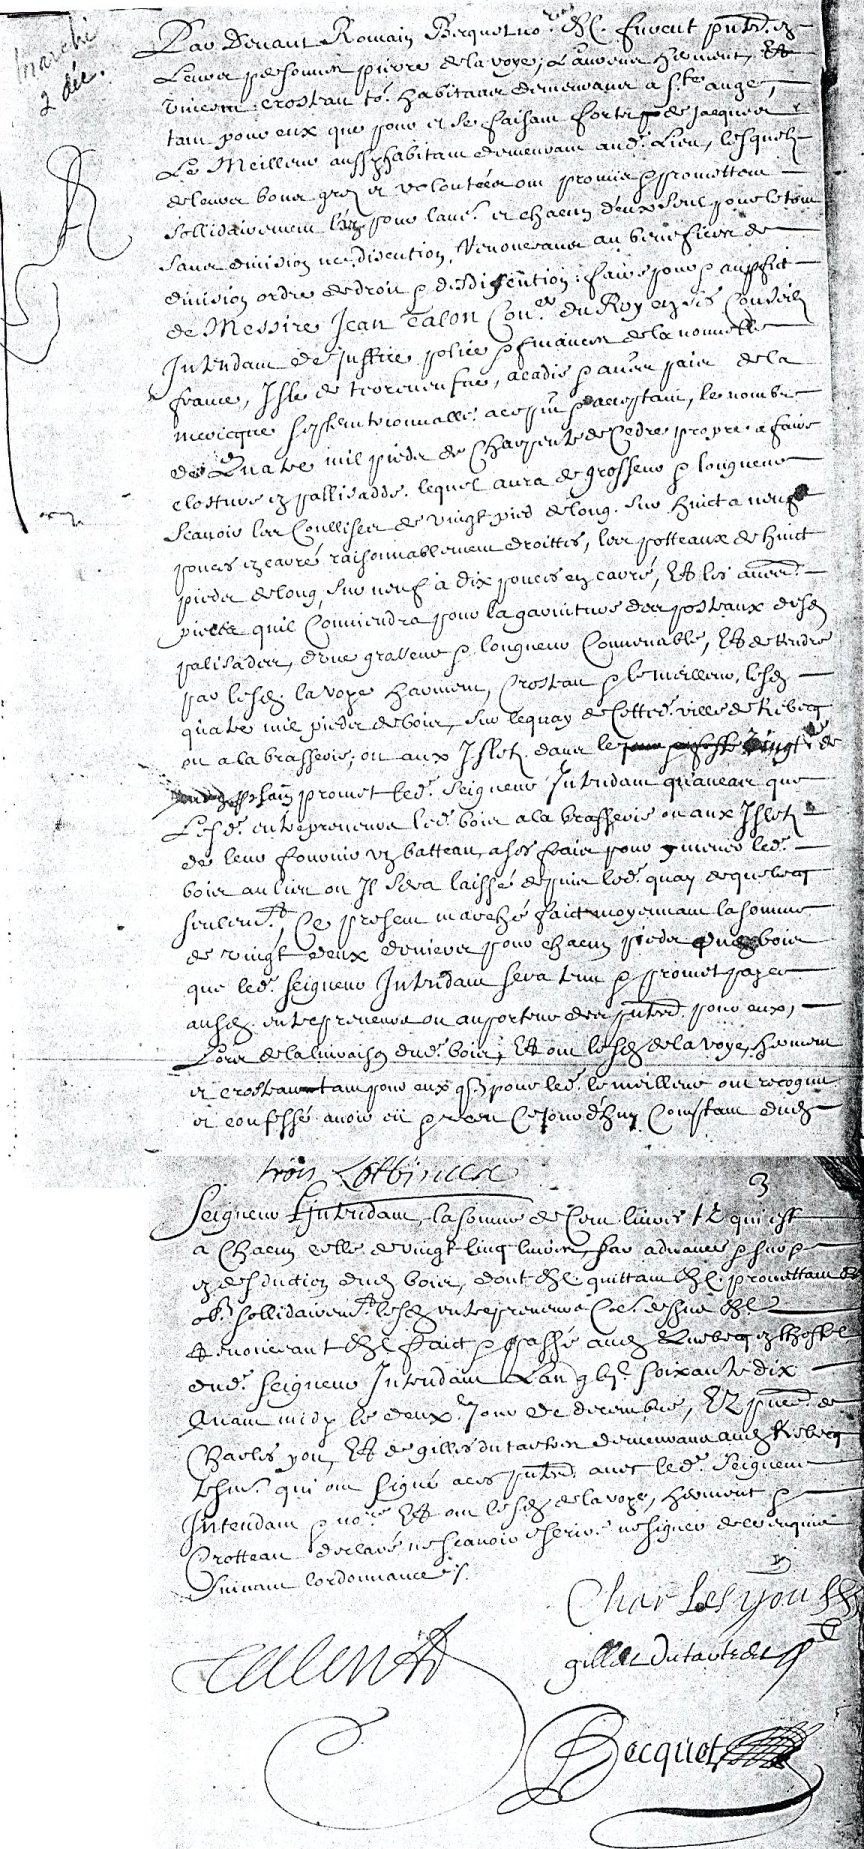 marché
2 déc.
Par Devant Romain Becquet no.re &c. furent pntz. en
Leurs personnes pierre de la voye, Laurens herment, Et
Vincent Crosteau to.s habitans demeurans a s.te ange,
tant pour eux que pour et se faisant forts de Jacques
Le Meilleur aussy habitant demeurant aud. Lieu, lesquelz
de leurs bons grez et volontées ont promis promettent
sollidairement l'un pour l'au.e et chacun d'eux seul pour le tout
sans division ne discution, Renonceans au benefices de
division ordre de droit discution, faire pour au proffict
de Messire Jean Talon Con.er du Roy en ses Conseils
Intendant de Justice police finances de la nouvelle
france, Isle de terreneufve, acadie autres pais de la
mericque septentrionnalle a ce pnt acceptant, le nombre
de Quatre mil pieds de Charpente de Cedre propre a faire
closture en pallisadde. lequel aura de grosseur longueur
scavoir les Coullisses de vingt pieds de long. sur huict a neuf
pouces en carré raisonnablement droittes, les potteaux de huict
pieds de long, sur neuf à dix pouces en carré, Et les autres
pieces qu'il Conviendra pour la garniture des posteaux desd
palisades, d'une grosseur longueur Convenable, Et de rendre
par lesd. la voye hermen, Crosteau le meilleur, lesd
quatre mil pieds de bois, sur le quay de Cette ville de Kebecq
ou a la brasserie, ou aux Isletz dans le vingt de
prochain promet led. Seigneur Intendant qu'aucas que
Lesd. entrepreneurs led. bois a la brasserie ou aux Isletz
de leur fournir un batteau, a ses frais pour mener led.
bois au lieu ou Il sera laissé depuis led. quay de quebecq
seulem.t, Ce present marché faict moyennant la somme
de vingt deux deniers pour chacun pieds dud bois
que led. Seigneur Intendant sera tenu promet payer
ausd. entrepreneurs ou au porteur des pntes. pour eux,
Lors de la livraison dud. bois; Et ont lesd. de la voye, hermen
et crosteau tant pour eux q pour led. le meilleur ont recognu
et confessé avoir eu receu Ce Jourd'huy Comptant dud
trois Lotbiniere
3
Seigneur Intendant, la somme de Cent livres t.z qui est
a Chacun celle de vingt Cinq livres, par advance sur
en desduction dud bois, dont &c. quittant &c. promettant &c
ob. sollidairem.t lesd. entrepreneurs Co.e dessus &c
Renoncant &c faict passé aud Quebecq en l'hostel
dud. Seigneur Intendant L'an gbi.c soixante dix
avant midy le deux.e Jour de decembre, Ez pnces. de
Charles you, Et de gilles dutartre demeurans aud Kebecq
tesm.s qui ont signé a ces pntes. avec led. Seigneur
Intendant no.re Et ont lesd. de la voye, hermont
Crotteau declaré ne scavoir escrire ne signer de ce enquis
suivant l'ordonnance
Charles you
gilles dutartre
Talon
Becquet